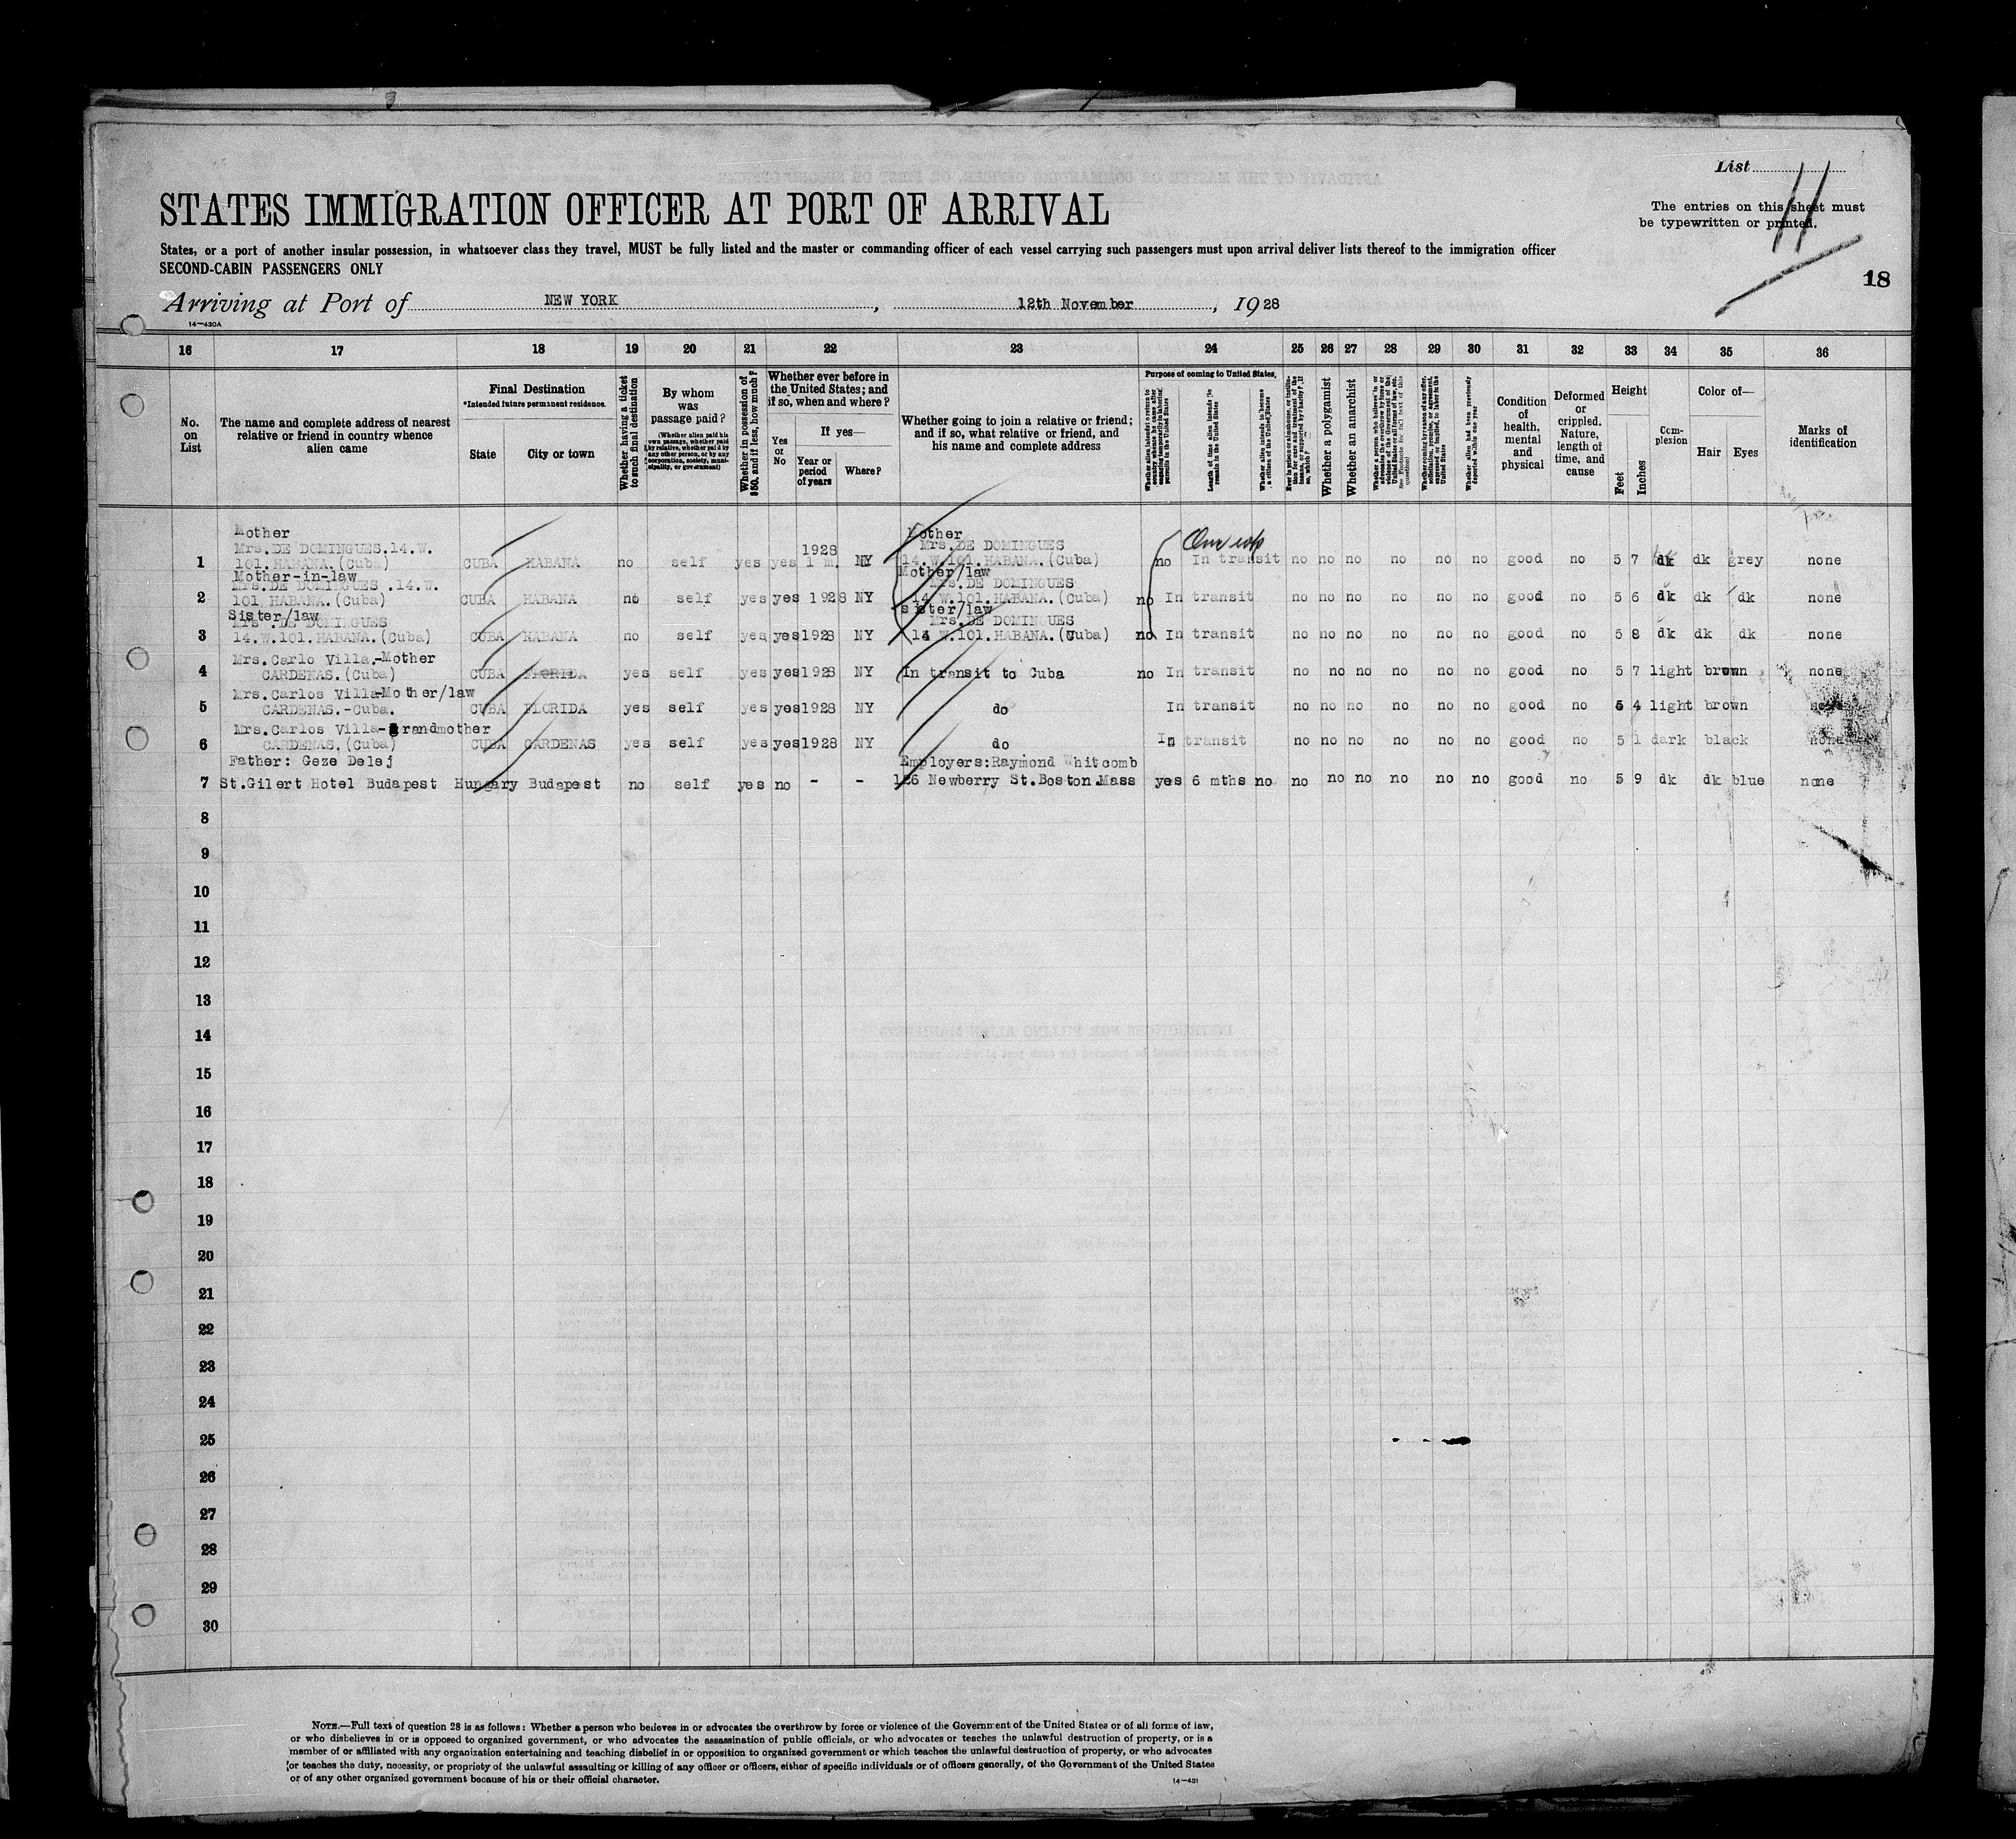 List
11
STATES IMMIGRATION OFFICER AT PORT OF ARRIVAL
The entries on this sheet must
be typewritten or printed.
States, or a port of another insular possession, in whatsoever class they travel, MUST be fully listed and the master or commanding officer of each vessel carrying such passengers must upon arrival deliver lists thereof to the immigration officer
SECOND-CABIN PASSENGERS ONLY
18
Arriving at Port of NEW YORK, 12th November, 1928
14—430A
16 17 18 19 20 21 22 23 24 25 26 27 28 29 30 31 32 33 34 35 36
No. on List
The name and complete address of nearest relative or friend in country whence alien came
Final Destination
*Intended future permanent residence.
State
City or town
Whether having a ticket to such final destination
By whom was passage paid?
(Whether alien paid his own passage, whether paid by relative, whether paid by any other person, or by any corporation, society, municipality, or government)
Whether in possession of $50, and if less, how much?
Whether ever before in the United States; and if so, when and where?
Yes or No
If yes—
Year or period of years
Where?
Whether going to join a relative or friend; and if so, what relative or friend, and his name and complete address
Purpose of coming to United States.
Length of time alien intends to remain in the United States
Whether alien intends to become a citizen of the United States
Whether a polygamist
Whether an anarchist
Whether alien had been previously deported within one year
Condition of health, mental and physical
Deformed or crippled. Nature, length of time, and cause
Height
Feet
Inches
Complexion
Color of—
Hair
Eyes
Marks of identification
Mother Mother
Mrs.DE DOMINGUES.14.W. 1928 Mrs.DE DOMINGUES
1 101.HABANA.(Cuba) CUBA HABANA no self yes yes 1 m. NY 14.W.101.HABANA.(Cuba) no In transit no no no no no no good no 5 7 dk dk grey none
Mother-in-law Mother/law
Mrs.DE DOMINGUES .14.W. Mrs.DE DOMINGUES
2 101 HABANA.(Cuba) CUBA HABANA no self yes yes 1928 NY 14 W.101.HABANA.(Cuba) no In transit no no no no no no good no 5 6 dk dk dk none
Sister/law sister/law
Mrs .DE DOMINGUES Mrs.DE DOMINGUES
3 14.W.101.HABANA.(Cuba) CUBA HABANA no self yes yes 1928 NY 14 W.101.HABANA.(Cuba) no In transit no no no no no no good no 5 8 dk dk dk none
Mrs.Carlo Villa.-Mother
4 CARDENAS.(Cuba) CUBA FLORIDA yes self yes yes 1928 NY In transit to Cuba no In transit no no no no no no good no 5 7 light brown none
Mrs.Carlos Villa-Mother/law
5 CARDENAS.-Cuba. CUBA FLORIDA yes self yes yes 1928 NY do In transit no no no no no no good no 5 4 light brown none
Mrs.Carlos Villa-grandmother
6 CARDENAS.(Cuba) CUBA CARDENAS yes self yes yes 1928 NY do In transit no no no no no no good no 5 1 dark black none
Father: Geze Delej Employers:Raymond Whitcomb
7 St.Gilert Hotel Budapest Hungary Budapest no self yes no - - 126 Newberry St.Boston.Mass yes 6 mths no no no no no no no good no 5 9 dk dk blue none
8
9
10
11
12
13
14
15
16
17
18
19
20
21
22
23
24
25
26
27
28
29
30
NOTE.—Full text of question 28 is as follows: Whether a person who believes in or advocates the overthrow by force or violence of the Government of the United States or of all forms of law,
or who disbelieves in or is opposed to organized government, or who advocates the assassination of public officials, or who advocates or teaches the unlawful destruction of property, or is a
member of or affiliated with any organization entertaining and teaching disbelief in or opposition to organized government or which teaches the unlawful destruction of property, or who advocates
or teaches the duty, necessity, or propriety of the unlawful assaulting or killing of any officer or officers, either of specific individuals or of officers generally, of the Government of the United States
or of any other organized government because of his or their official character.
14—431